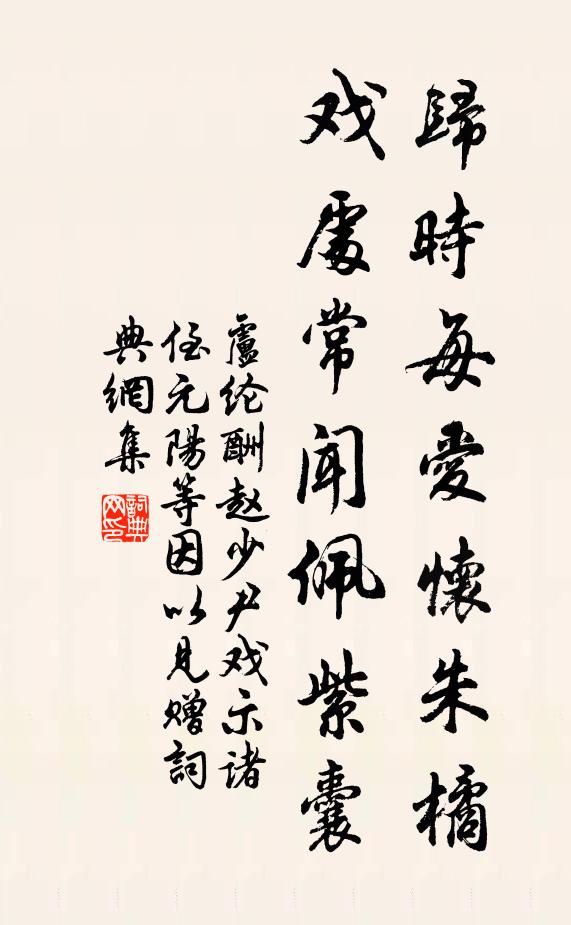 歸時每愛懷朱橘
戏處常聞佩紫囊
盧纶酬赵少尹戏示诸
侄元陽等因以見赠詞
典網集
詞典网印